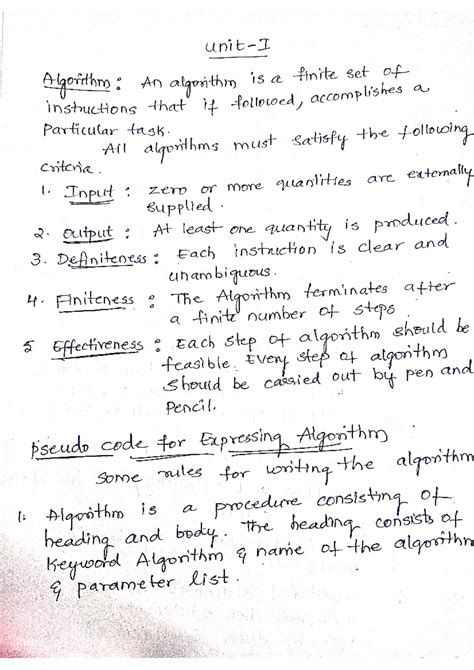 Unit-I
Algorithm : An algorithm is a finite set of
instructions that if followed, accomplishes a
Particular task.
All algorithms must satisfy the following
Criteria.
1. Input : zero or more quantities are externally
supplied.
2. output : At least one quantity is produced.
3. Definiteness : Each instruction is clear and
unambiguous.
4. Finiteness : The Algorithm terminates after
a finite number of steps
5 Effectiveness : Each step of algorithm should be
feasible. Every step of algorithm
should be carried out by pen and
Pencil.
Pseudo code for Expressing Algorithm
Some rules for writing the algorithm
1. Algorithm is a procedure consisting of
heading and body. The heading consists of
Keyword Algorithm & name of the algorithm
& parameter list.